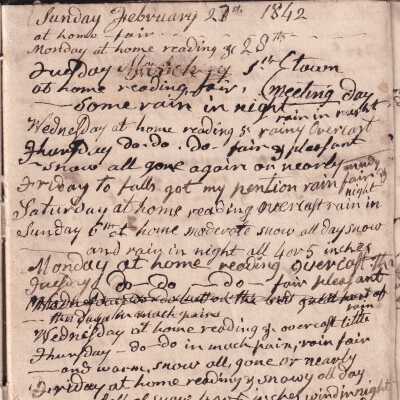 Sunday February 27th 1842
at home fair
Monday at home reading & 28th
Tuesday March 1st Town
at home reading, fair, Meeting day
some rain in night rain in night
Wednesday at home reading & rainy Overcast
Thursday do. do. do fair & pleasant
snow all gone again or nearly
Friday to falls got my pention rain
windy fair in night
Saturday at home reading overcast rain in
Sunday 6th at home moderate snow all day snow
and rain in night all 4 or 5 inches
Monday at home reading overcast
Tuesday do do do fair pleasant
the day in much pain
Wednesday at home reading & overcast little rain
Thursday do do in much pain, rain fair
and warm, snow all, gone or nearly
Friday at home reading & snowy all day
fall of snow 4 or 5 inches wind in night